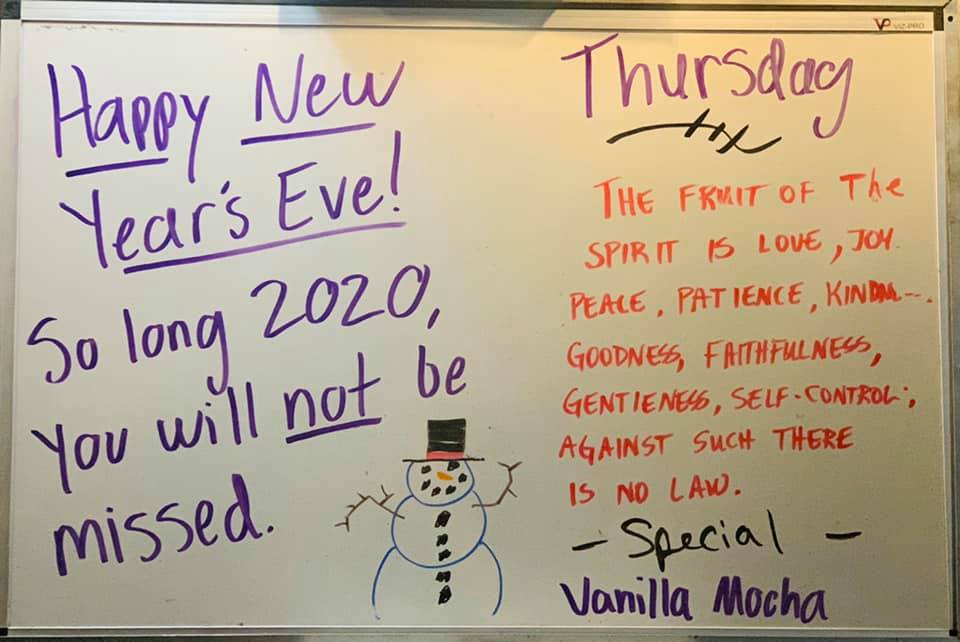 VP VIZ-PRO
Happy New
Year's Eve!
So long 2020,
you will not be
missed.
Thursday
THE FRUIT OF The
SPIRIT IS LOVE, JOY.
PEACE, PATIENCE,
GOODNESS, FAITHFULNESS,
GENTIENESS, SELF-CONTROL;
AGAINST SUCH THERE
IS NO LAW.
- Special -
Vanilla Mocha